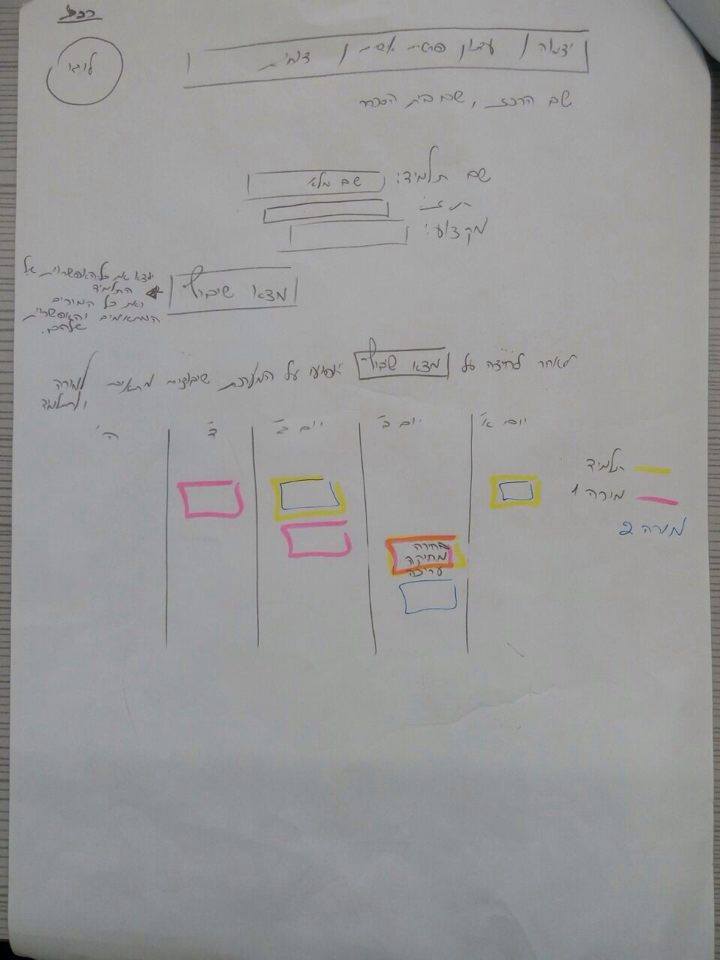 רכז
לוגו
יציאה | עדכון פרטים אישיים | דוחות
שם הרכז, שם בית הספר
שם תלמיד: שם מלא
ת.ז:
מקצוע:
מצא שיבוץ
מצא את כל האפשרויות של
התלמיד
ואת כל המורים
המתאימים והאפשרויות
שלהם.
לאחר לחיצה על מצא שיבוץ יופיעו על המערכת שיבוצים מתאים למורה
ולתלמיד
יום א' יום ב' יום ג' ד' ה'
תלמיד
מורה 1
מורה 2
בחירה
מחיקה
עריכה